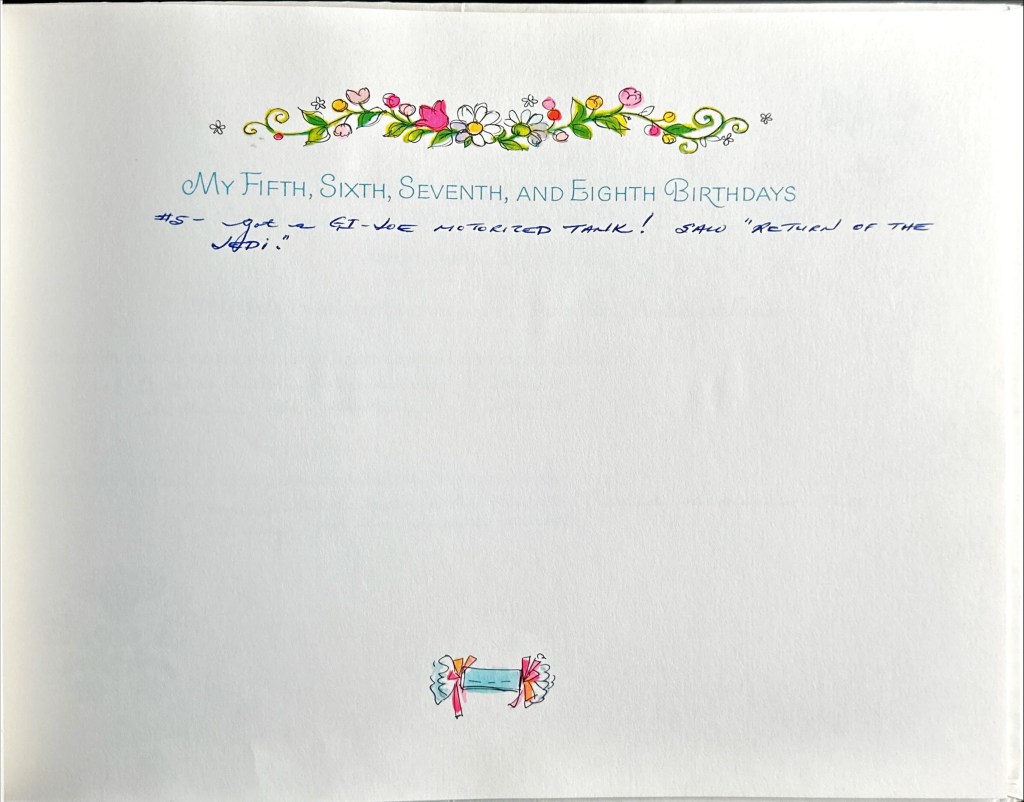 My Fifth, Sixth, Seventh, and Eighth Birthdays
#5 - got a GI-JOE MOTORIZED TANK! SAW "RETURN OF THE
JEDi."